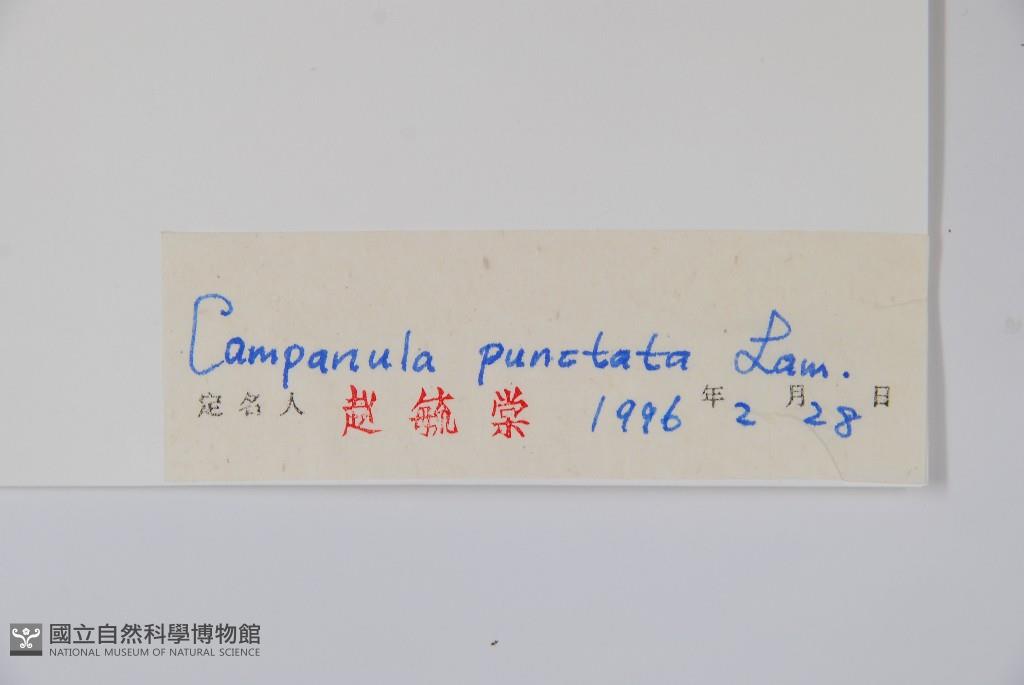 Campanula punctata Lam.
定名人 赵毓棠 1996年2月28日
國立自然科學博物館
NATIONAL MUSEUM OF NATURAL SCIENCE